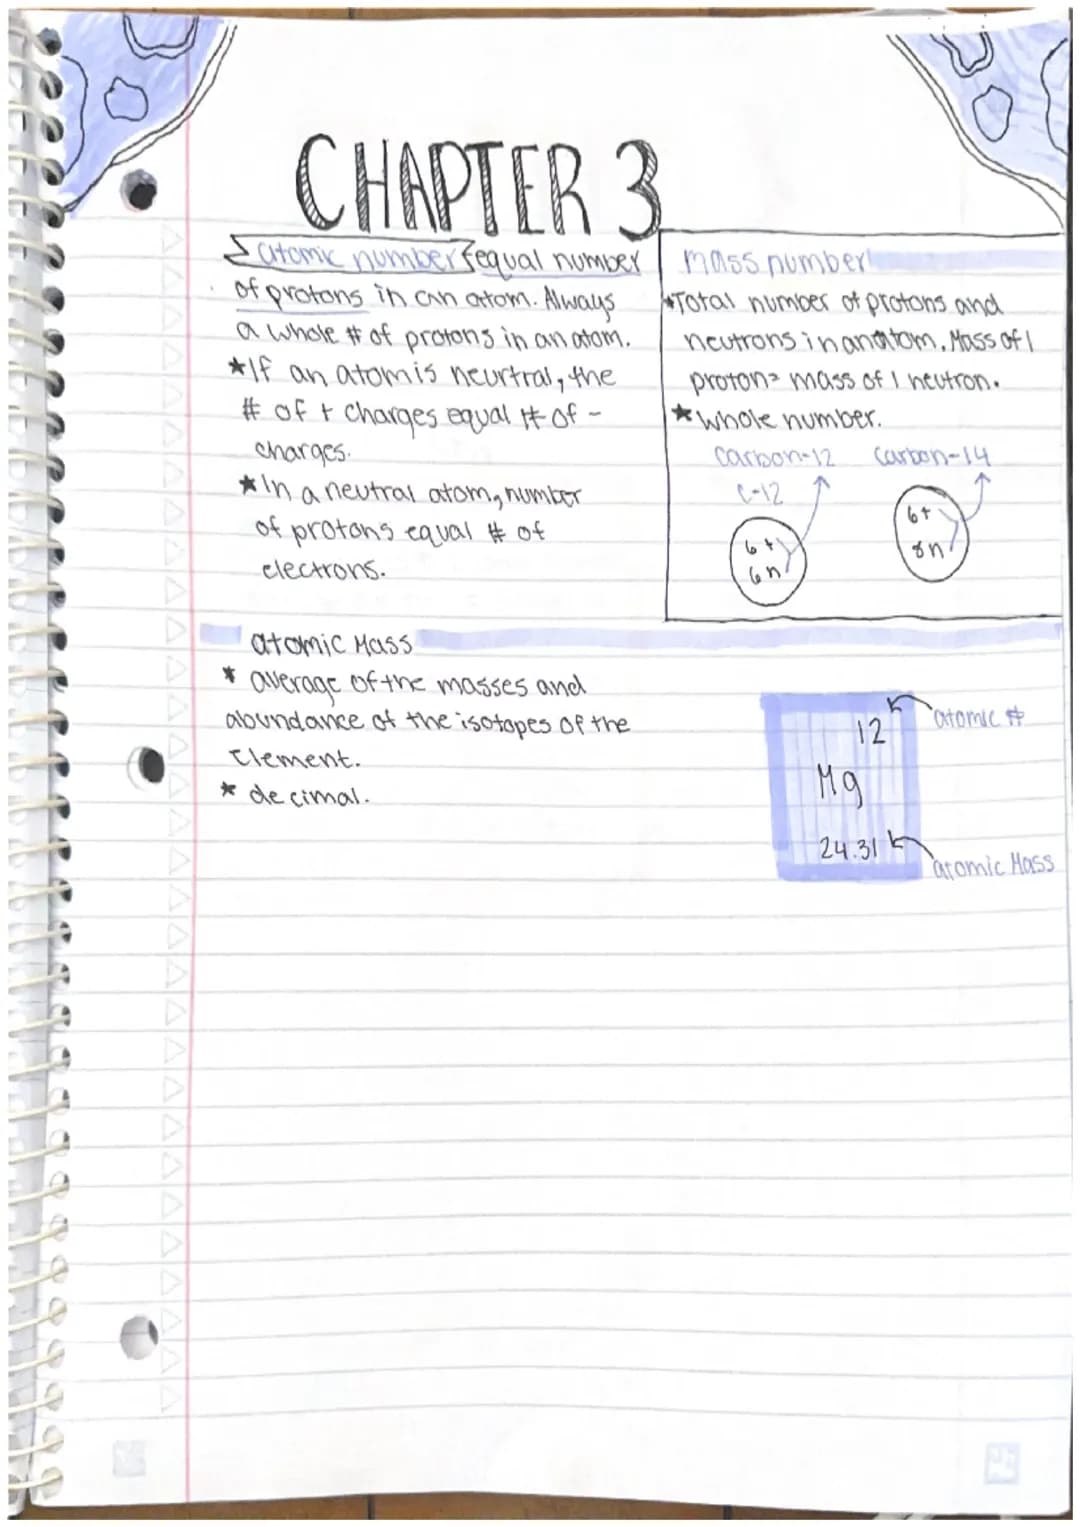 CHAPTER 3
atomic number equal number
of protons in an atom. Always
a whole # of protons in an atom.
*If an atom is neurtral, the
# of + charges equal # of -
charges.
*In a neutral atom, number
of protons equal # of
electrons.
mass number
*Total number of protons and
neutrons in an atom. Mass of 1
proton= mass of 1 neutron.
* whole number.
Carbon-12 Carbon-14
C-12
6+
6n
6+
8n
atomic Mass
* average of the masses and
abundance of the isotopes of the
Element.
* decimal.
12 atomic #
Mg
24.31 atomic Mass